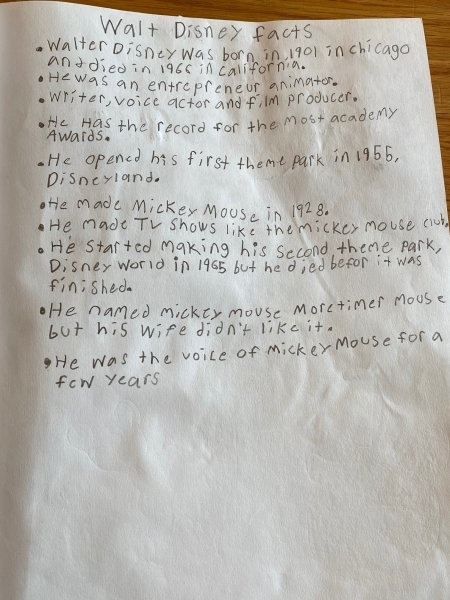 Walt Disney facts
• Walter Disney was born in 1901 in chicago
and died in 1966 in california.
• He was an entrepreneur animator.
• Writer, voice actor and film producer.
• He Has the record for the most academy
Awards.
• He opened his first theme park in 1955,
Disneyland.
• He made Mickey Mouse in 1928.
• He made TV shows like the mickey mouse club.
• He started making his second theme park,
Disney World in 1965 but he died befor it was
finished.
• He named mickey mouse Moretimer Mouse
but his wife didn't like it.
• He was the voice of Mickey Mouse for a
few years